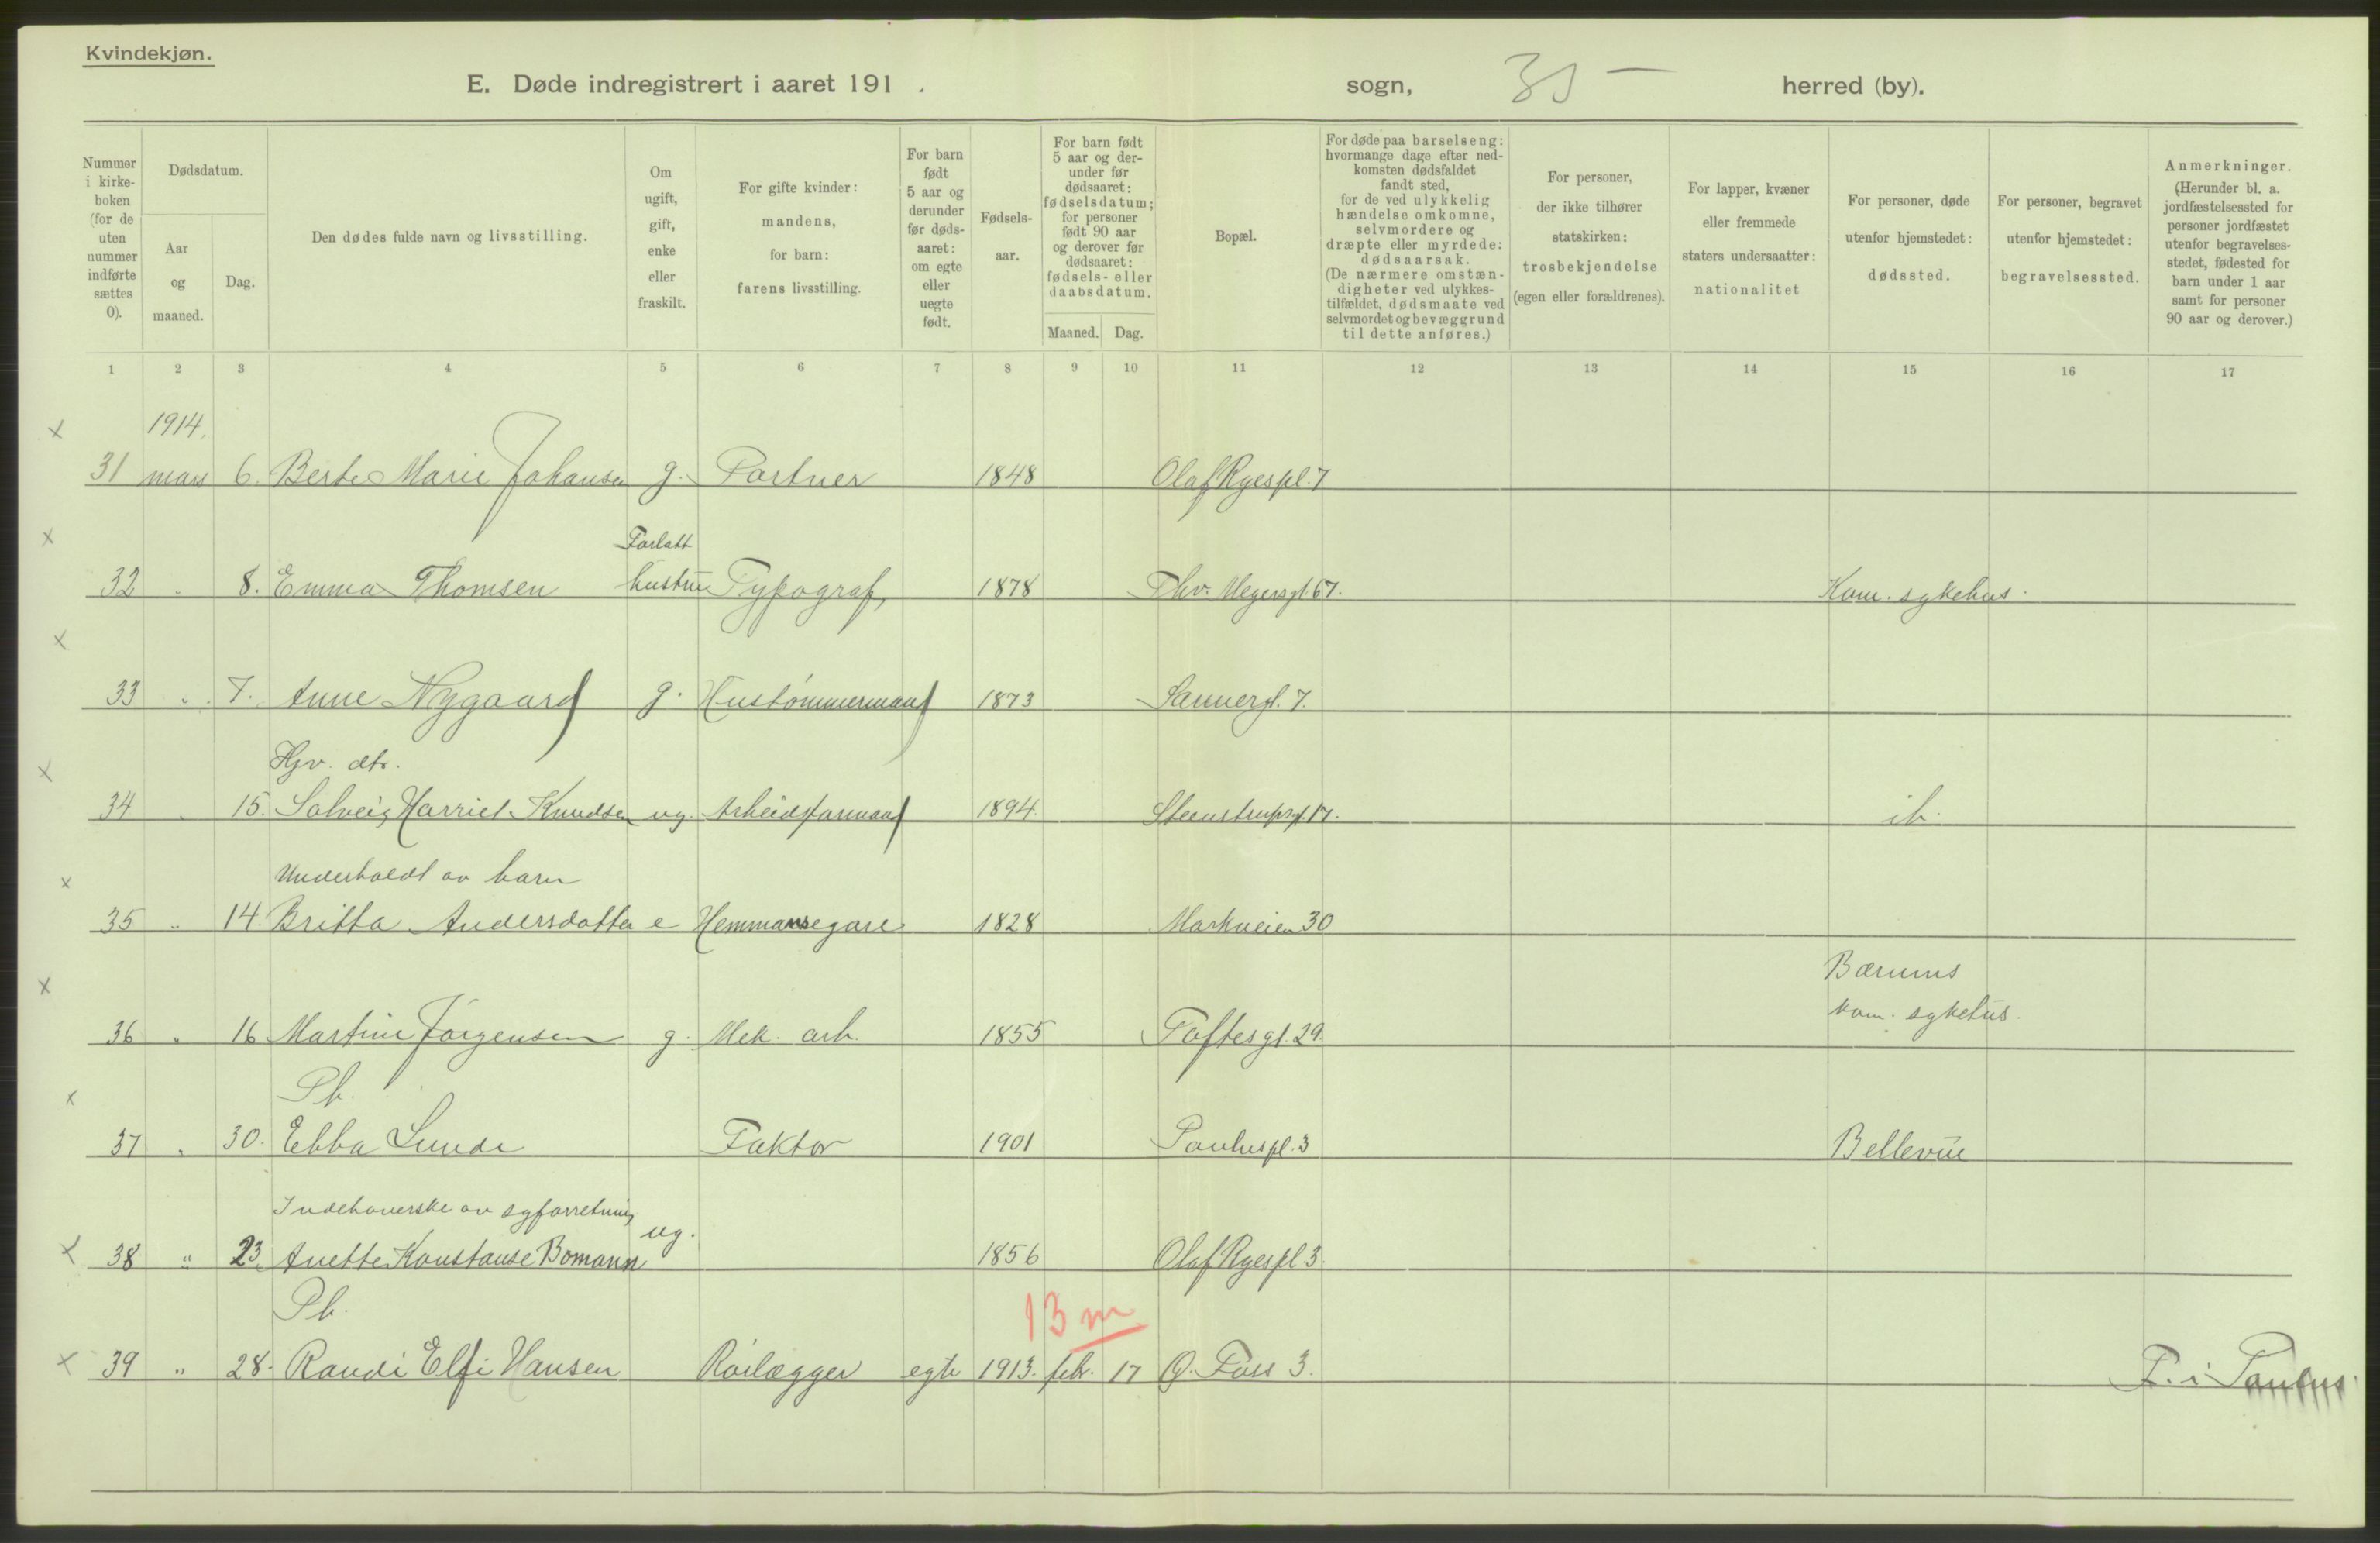 Kvindekjøn.
E. Døde indregistrert i aaret 191 . sogn, 35 — herred (by).
Nummer i kirke- boken (for de uten nummer indførte sættes 0).
Dødsdatum.
Aar og maaned.
Dag.
Den dødes fulde navn og livsstilling.
Om ugift, gift, enke eller fraskilt.
For gifte kvinder: mandens, for barn: farens livsstilling.
For barn født 5 aar og derunder før døds- aaret: om egte eller uegte født.
Fødsels- aar.
For barn født 5 aar og der- under før dødsaaret: fødselsdatum; for personer født 90 aar og derover før dødsaaret: fødsels- eller daabsdatum.
Maaned. Dag.
Bopæl.
For døde paa barselseng: hvormange dage efter ned- komsten dødsfaldet fandt sted, for de ved ulykkelig hændelse omkomne, selvmordere og dræpte eller myrdede: dødsaarsak. (De nærmere omstæn- digheter ved ulykkes- tilfældet, dødsmaate ved selvmordet og bevæggrund til dette anføres.)
For personer, der ikke tilhører statskirken: trosbekjendelse (egen eller forældrenes).
For lapper, kvæner eller fremmede staters undersaatter: nationalitet
For personer, døde utenfor hjemstedet: dødssted.
For personer, begravet utenfor hjemstedet: begravelsessted.
Anmerkninger. (Herunder bl. a. jordfæstelsessted for personer jordfæstet utenfor begravelses- stedet, fødested for barn under 1 aar samt for personer 90 aar og derover.)
1 2 3 4 5 6 7 8 9 10 11 12 13 14 15 16 17
x 1914.
31 mars 6. Berte Marie Johansen g. Portner 1848 Olaf Ryespl. 7
x Forlatt
32 " 8. Emma Thomsen hustru Typograf, 1878 Thv. Meyersgt. 67. Kom. sykehus.
x
33 " 7. Anne Nygaard g. Hustømmermand 1873 Sannergt. 7.
Hjv. dtr.
x
34 " 15. Solveig Harriet Knudsen ug. Arbeidsformand 1894. Steenstrupsgt. 17. ib.
Underholdt av barn
x
35 " 14. Britta Andersdatter e Hemmansegare 1828 Markveien 30
x Bærums
36 " 16 Martine Jørgensen g. Mek. arb. 1855 Toftesgt. 29. kom. sykehus.
Pb.
x
37 " 30. Ebba Lunde Faktor 1901 Pauluspl. 3 Bellevue
Indehaverske av syforretning
x 38 " 23. Anette Konstanse Bomann ug. 1856 Olaf Ryespl 3.
Pb. 13 m
x 39 " 28. Randi Elfi Hansen Rørlægger egte 1913. febr. 17 Ø. Foss 3. F. i Paulus.